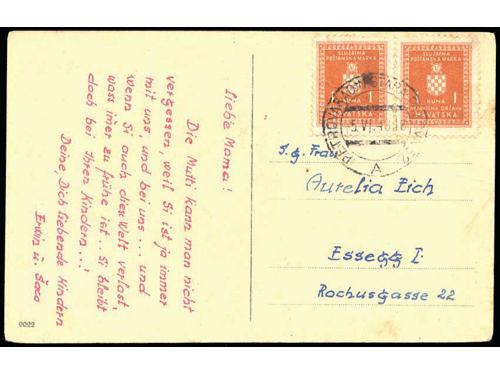 Liebe Mama!
Die Mutti kann man nicht
vergessen weil Si ist ja immer
mit uns, und bei uns... und
wenn Si auch diese Welt verlast,
was imer zu frühe ist.. Si bleibt
doch bei Ihren Kindern...!
Deine, Dich liebende Kindern
Erwin u. Saco
9022
SLUŽBENA
POŠTANSKA MARKA
1
KUNA
NEZAVISNA DRŽAVA
HRVATSKA
SLUŽBENA
POŠTANSKA MARKA
KUNA
1
NEZAVISNA DRŽAVA
HRVATSKA
I.g. Frau
Aurelia Eich
Essegg I.
Rochusgasse 22